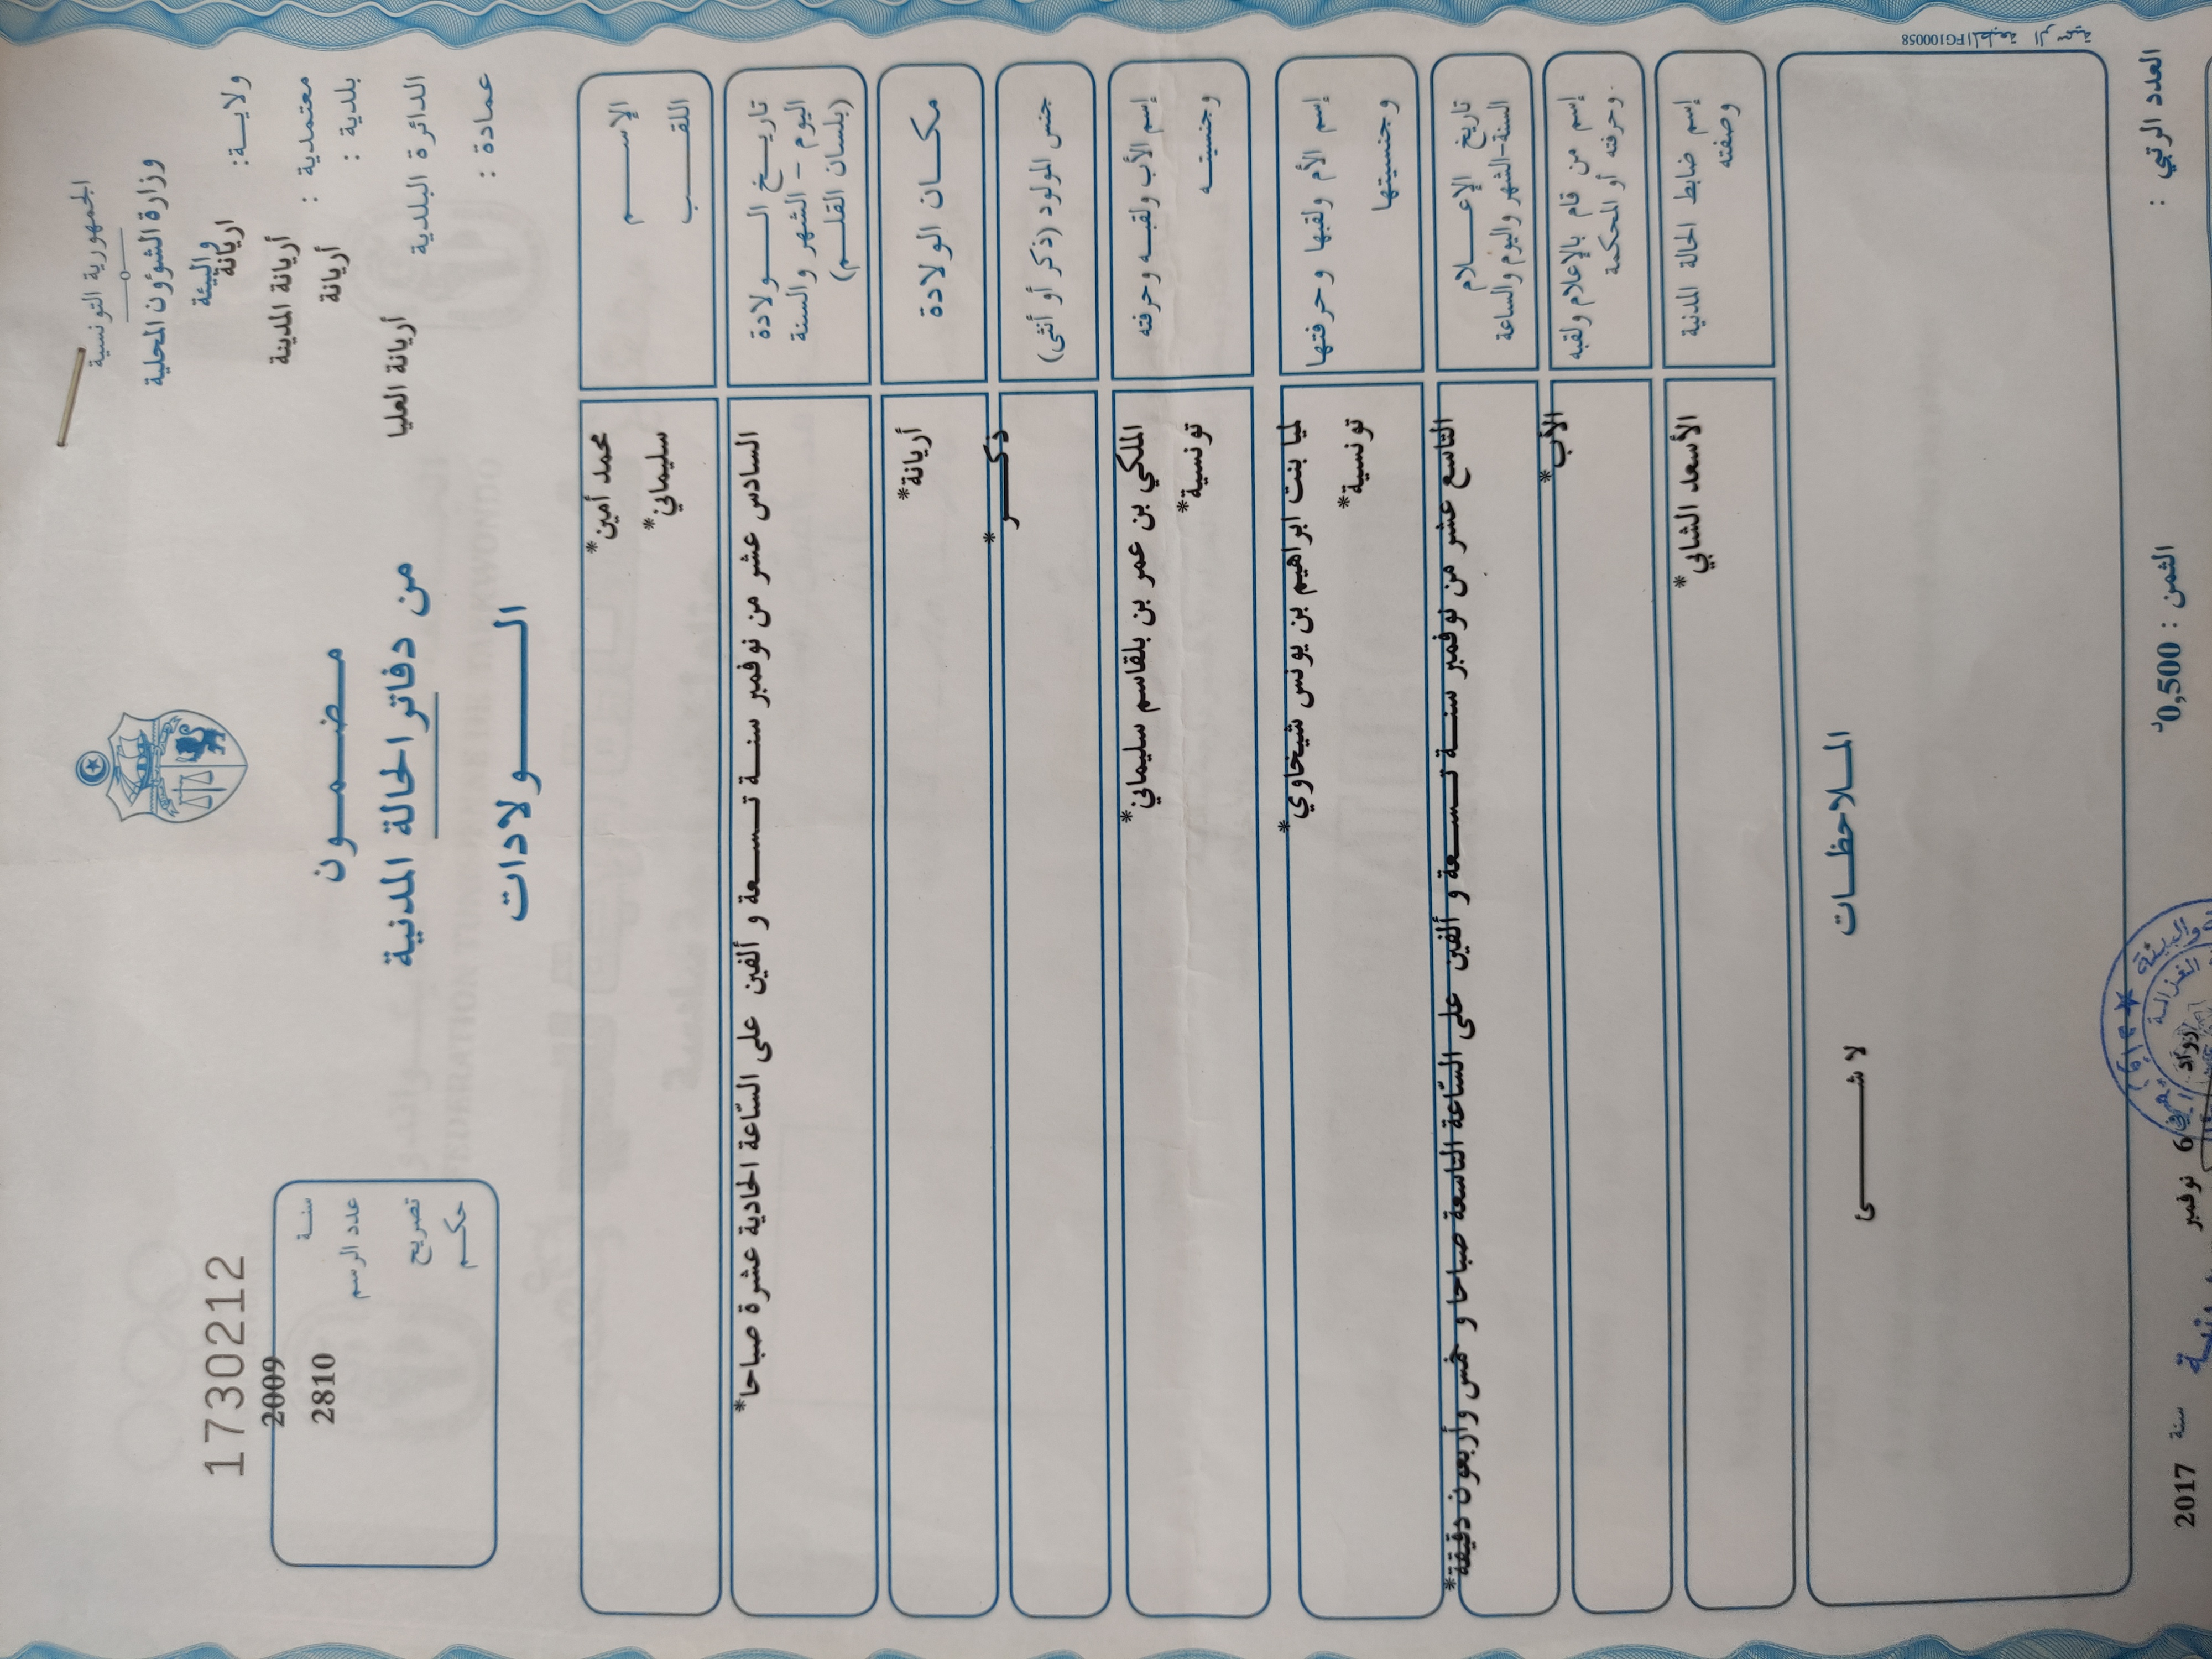 الجمهورية التونسية
وزارة الشؤون المحلية
والبيئة
ولاية: اريانة
معتمدية : أريانة المدينة
بلدية : أريانة
الدائرة البلدية أريانة العليا
عمادة :
مضمون
من دفاتر الحالة المدنية
الولادات
1730212
سنة 2009
عدد الرسم 2810
تصريح
حكم
الإسم محمد أمين*
اللقب سليماني*
تاريخ الولادة السادس عشر من نوفمبر سنة تسعة و ألفين على السّاعة الحادية عشرة صباحا*
اليوم - الشهر والسنة
(بلسان القلم)
مكان الولادة أريانة*
جنس المولود (ذكر أو أنثى) ذكر*
إسم الأب ولقبه وحرفته الملكي بن عمر بن بلقاسم سليماني*
وجنسيته تونسية*
إسم الأم ولقبها وحرفتها لميا بنت ابراهيم بن يونس شيخاوي*
وجنسيتها تونسية*
تاريخ الإعلام التاسع عشر من نوفمبر سنة تسعة و ألفين على السّاعة التاسعة صباحا و خمس وأربعون دقيقة*
السنة-الشهر واليوم والساعة
إسم من قام بالإعلام ولقبه الأب*
وحرفته أو المحكمة
إسم ضابط الحالة المدنية الأسعد الشابي*
وصفته
الملاحظات
لا شى
المطبعة الرسمية PG100058
العدد الرتبي :
الثمن : 0,500د
6 نوفمبر سنة 2017